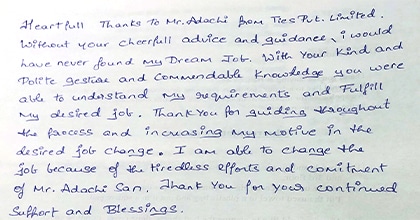 Heartfull Thanks To Mr. Adachi from Ties Pvt. Limited.
Without your cheerfull advice and guidance, i would
have never found my Dream Job. With Your Kind and
Polite gesture and Commendable Knowledge you were
able to understand My requirements and Fulfill
My desired job. Thank You for guiding throughout
the process and increasing My motive in the
desired job change. I am able to change the
job because of the tiredless efforts and comitment
of Mr. Adachi San. Thank You for your continued
Support and Blessings.